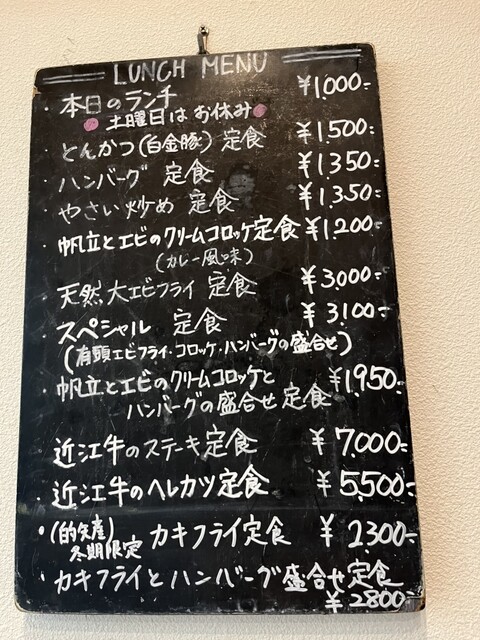 LUNCH MENU
・本日のランチ ¥1,000-
土曜日はお休み
・とんかつ(白金豚)定食 ¥1,500-
・ハンバーグ 定食 ¥1,350-
・やさい炒め 定食 ¥1,350-
・帆立とエビのクリームコロッケ定食 ¥1,200-
(カレー風味)
・天然大エビフライ 定食 ¥3,000-
・スペシャル 定食 ¥3,100-
(有頭エビフライ・コロッケ・ハンバーグの盛合せ)
・帆立とエビのクリームコロッケと ¥1,950-
ハンバーグの盛合せ定食
・近江牛のステーキ定食 ¥7,000-
・近江牛のヘレカツ定食 ¥5,500-
・(的矢産)冬期限定 カキフライ定食 ¥2300-
・カキフライとハンバーグ盛合せ定食
¥2800-